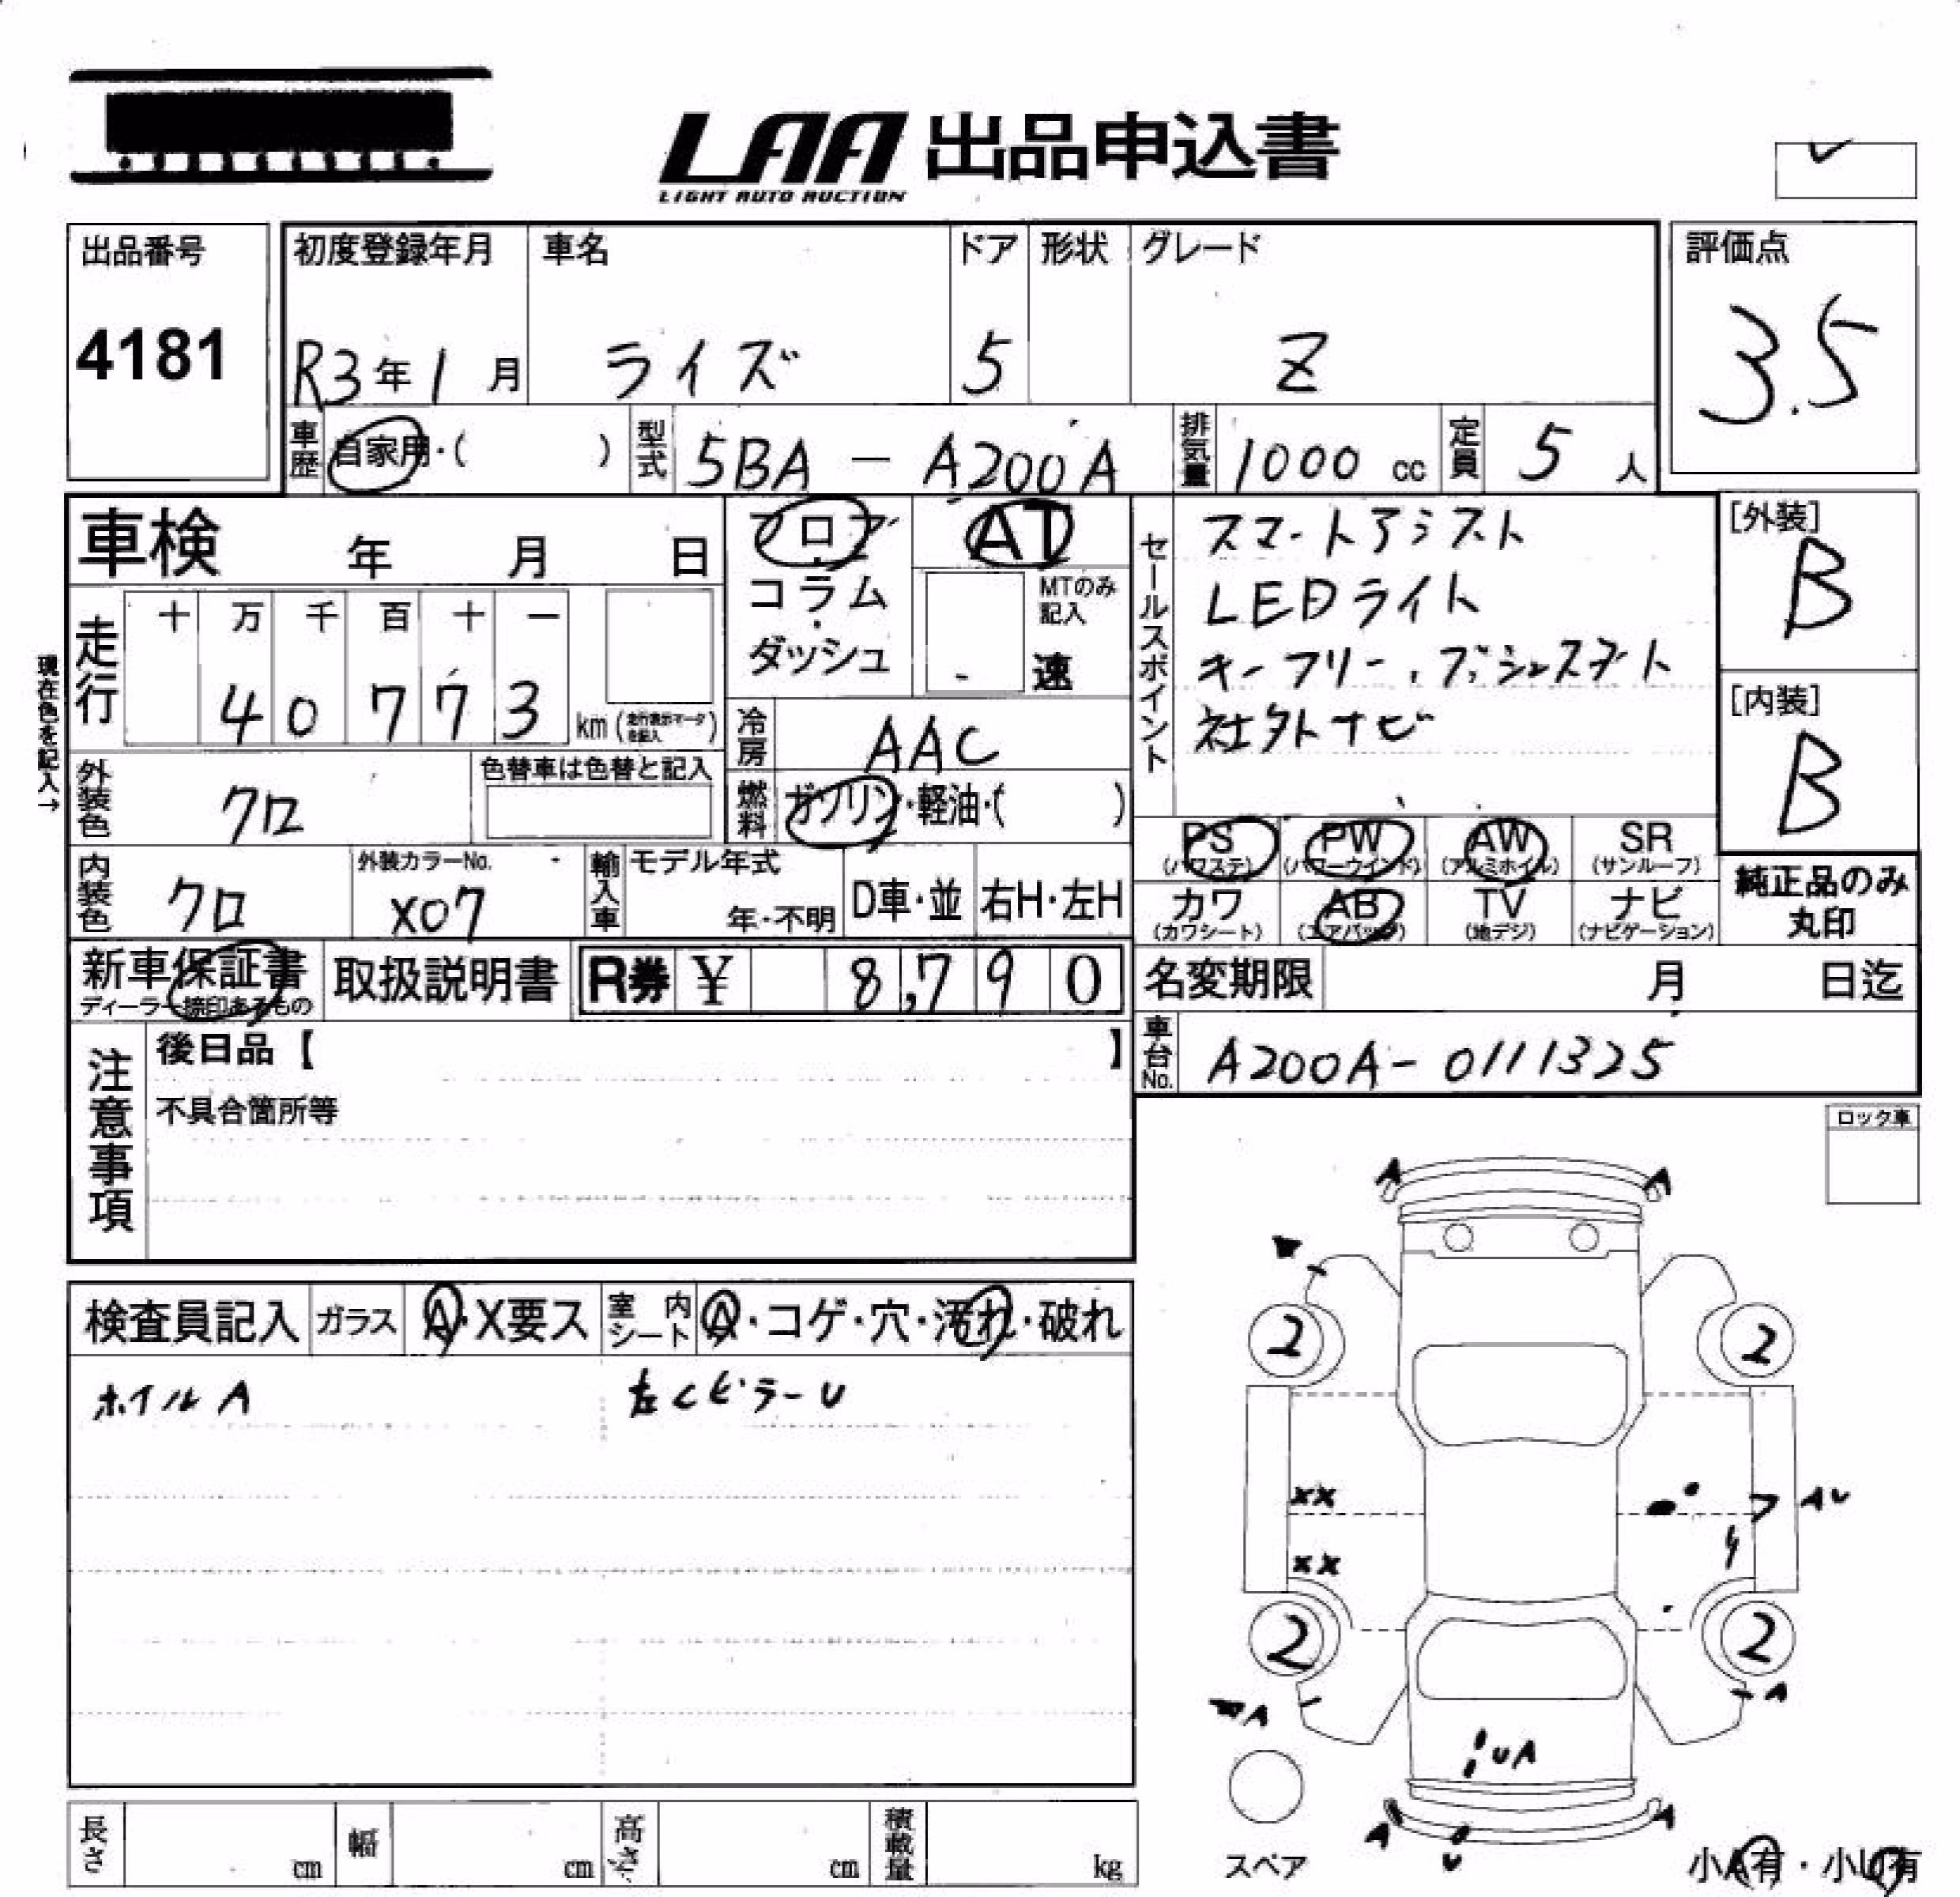 LAA 出品申込書
LIGHT AUTO AUCTION
出品番号
4181
初度登録年月
R3年1月
車名
ライズ
ドア
5
形状
グレード
Z
評価点
3.5
車歴 自家用・( )
型式 5BA - A200A
排気量 1000 cc
定員 5 人
車検 年 月 日
フロア
コラム
ダッシュ
AT
MTのみ記入
速
セールスポイント
スマートアシスト
LEDライト
キーフリー、プッシュスタート
社外ナビ
[外装]
B
[内装]
B
現在色を記入→
走行
十 万 千 百 十 一
4 0 7 7 3 km (走行表示マータを記入)
冷房 AAC
燃料 ガソリン・軽油・( )
外装色 クロ
色替車は色替と記入
内装色 クロ
外装カラーNo.
X07
輸入車 モデル年式
年・不明
D車・並
右H・左H
PS (パワステ)
PW (パワーウインド)
AW (アルミホイル)
SR (サンルーフ)
カワ (カワシート)
AB (エアバッグ)
TV (地デジ)
ナビ (ナビゲーション)
純正品のみ
丸印
新車保証書
ディーラー捺印あるもの
取扱説明書
R券 ¥ 8,790
名変期限 月 日迄
車台No. A200A-0111325
注意事項
後日品【 】
不具合箇所等
ロック車
検査員記入
ガラス A・X要ス
室内シート A・コゲ・穴・汚れ・破れ
ホイルA
左くピラーU
A A
2 2
XX
AU
XX
2 2
A A
UA
A A
U
スペア
小A有・小U有
長さ cm
幅 cm
高さ cm
積載量 kg